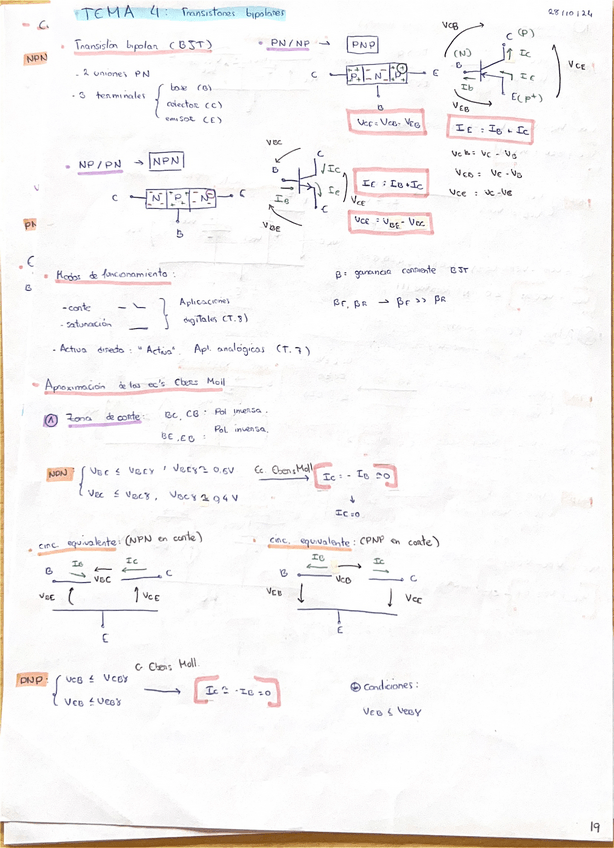 TEMA 4: Transistores bipolares
28/10/24
C.
NPN
• Transistor bipolar (BJT)
- 2 uniones PN
- 3 terminales
base (B)
colector (C)
emisor (E)
• PN/NP → PNP
C P+ N P E
B
VCE = VCB - VEB
VCB
C (P)
IC
(N)
B
IE
Ib
E (P+)
VEB
VCE
IE = IB + IC
VCB = VC - VB
VCE = VC - VB
• NP/PN → NPN
C N P N E
B
VBC
C
B
IC
IE
IB
E
VBE
VCE
IE = IB + IC
VCE = VBE - VBC
PN
C
B
• Modos de funcionamiento:
- corte
- saturación
Aplicaciones
digitales (T.8)
- Activa directa: "Activa". Apl. analógicas (T.7)
β = ganancia corriente BJT
βF, βR → βF >> βR
• Aproximación de las ec's Ebers Moll
1 Zona de corte: BC, CB: Pol inversa.
BE, EB: Pol inversa.
NPN
VBE ≤ VBEγ, VBEγ ≅ 0.6V
VBC ≤ VBCγ, VBCγ ≅ 0.4V
Ec Ebers Moll
IC = - IB ≅ 0
IC = 0
• circ. equivalente: (NPN en corte)
B IB VBC IC C
VBE
VCE
E
• circ. equivalente: (PNP en corte)
B IB VCB IC C
VEB
VCE
E
PNP:
VCB ≤ VCBγ
VEB ≤ VEBγ
Ebers Moll.
IC ≅ -IB = 0
Condiciones:
VEB ≤ VEBγ
19